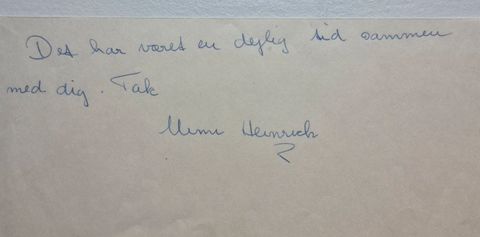 Det har været en dejlig tid sammen
med dig. Tak
Mimi Heinrich